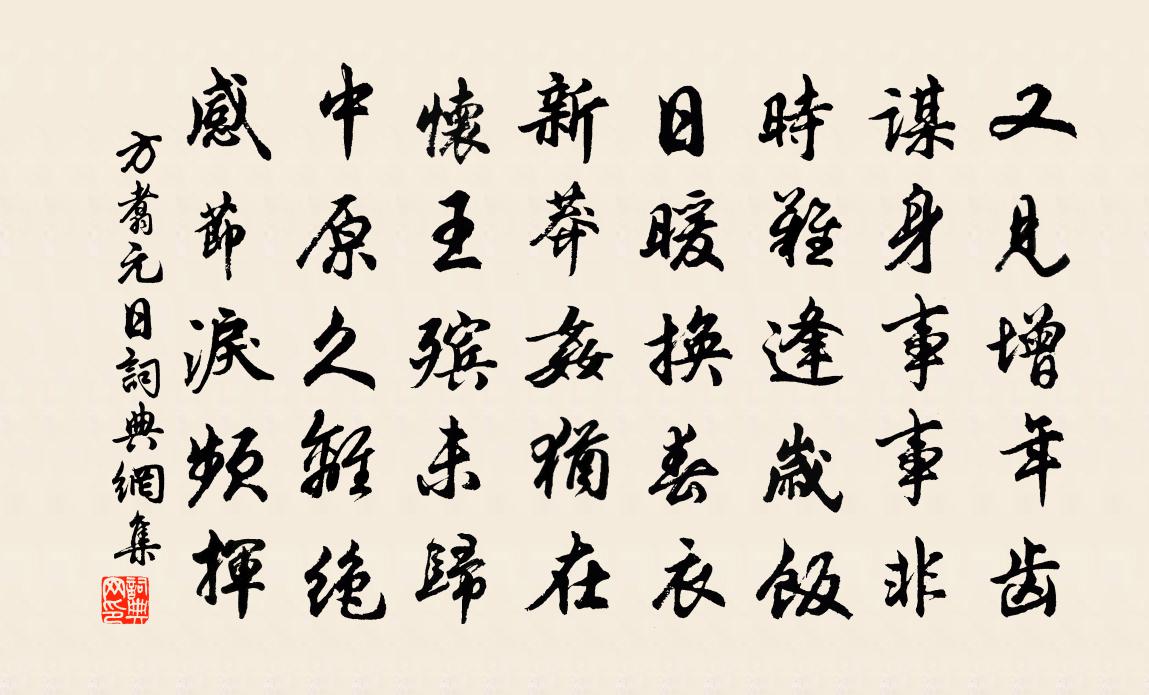 又見增年齿
謀身事事非
時難逢歲飯
日暖換春衣
新莽姦猶在
懷王殯未歸
中原久離絶
感節淚頻揮
方翥元日詞典網集
詞典網印